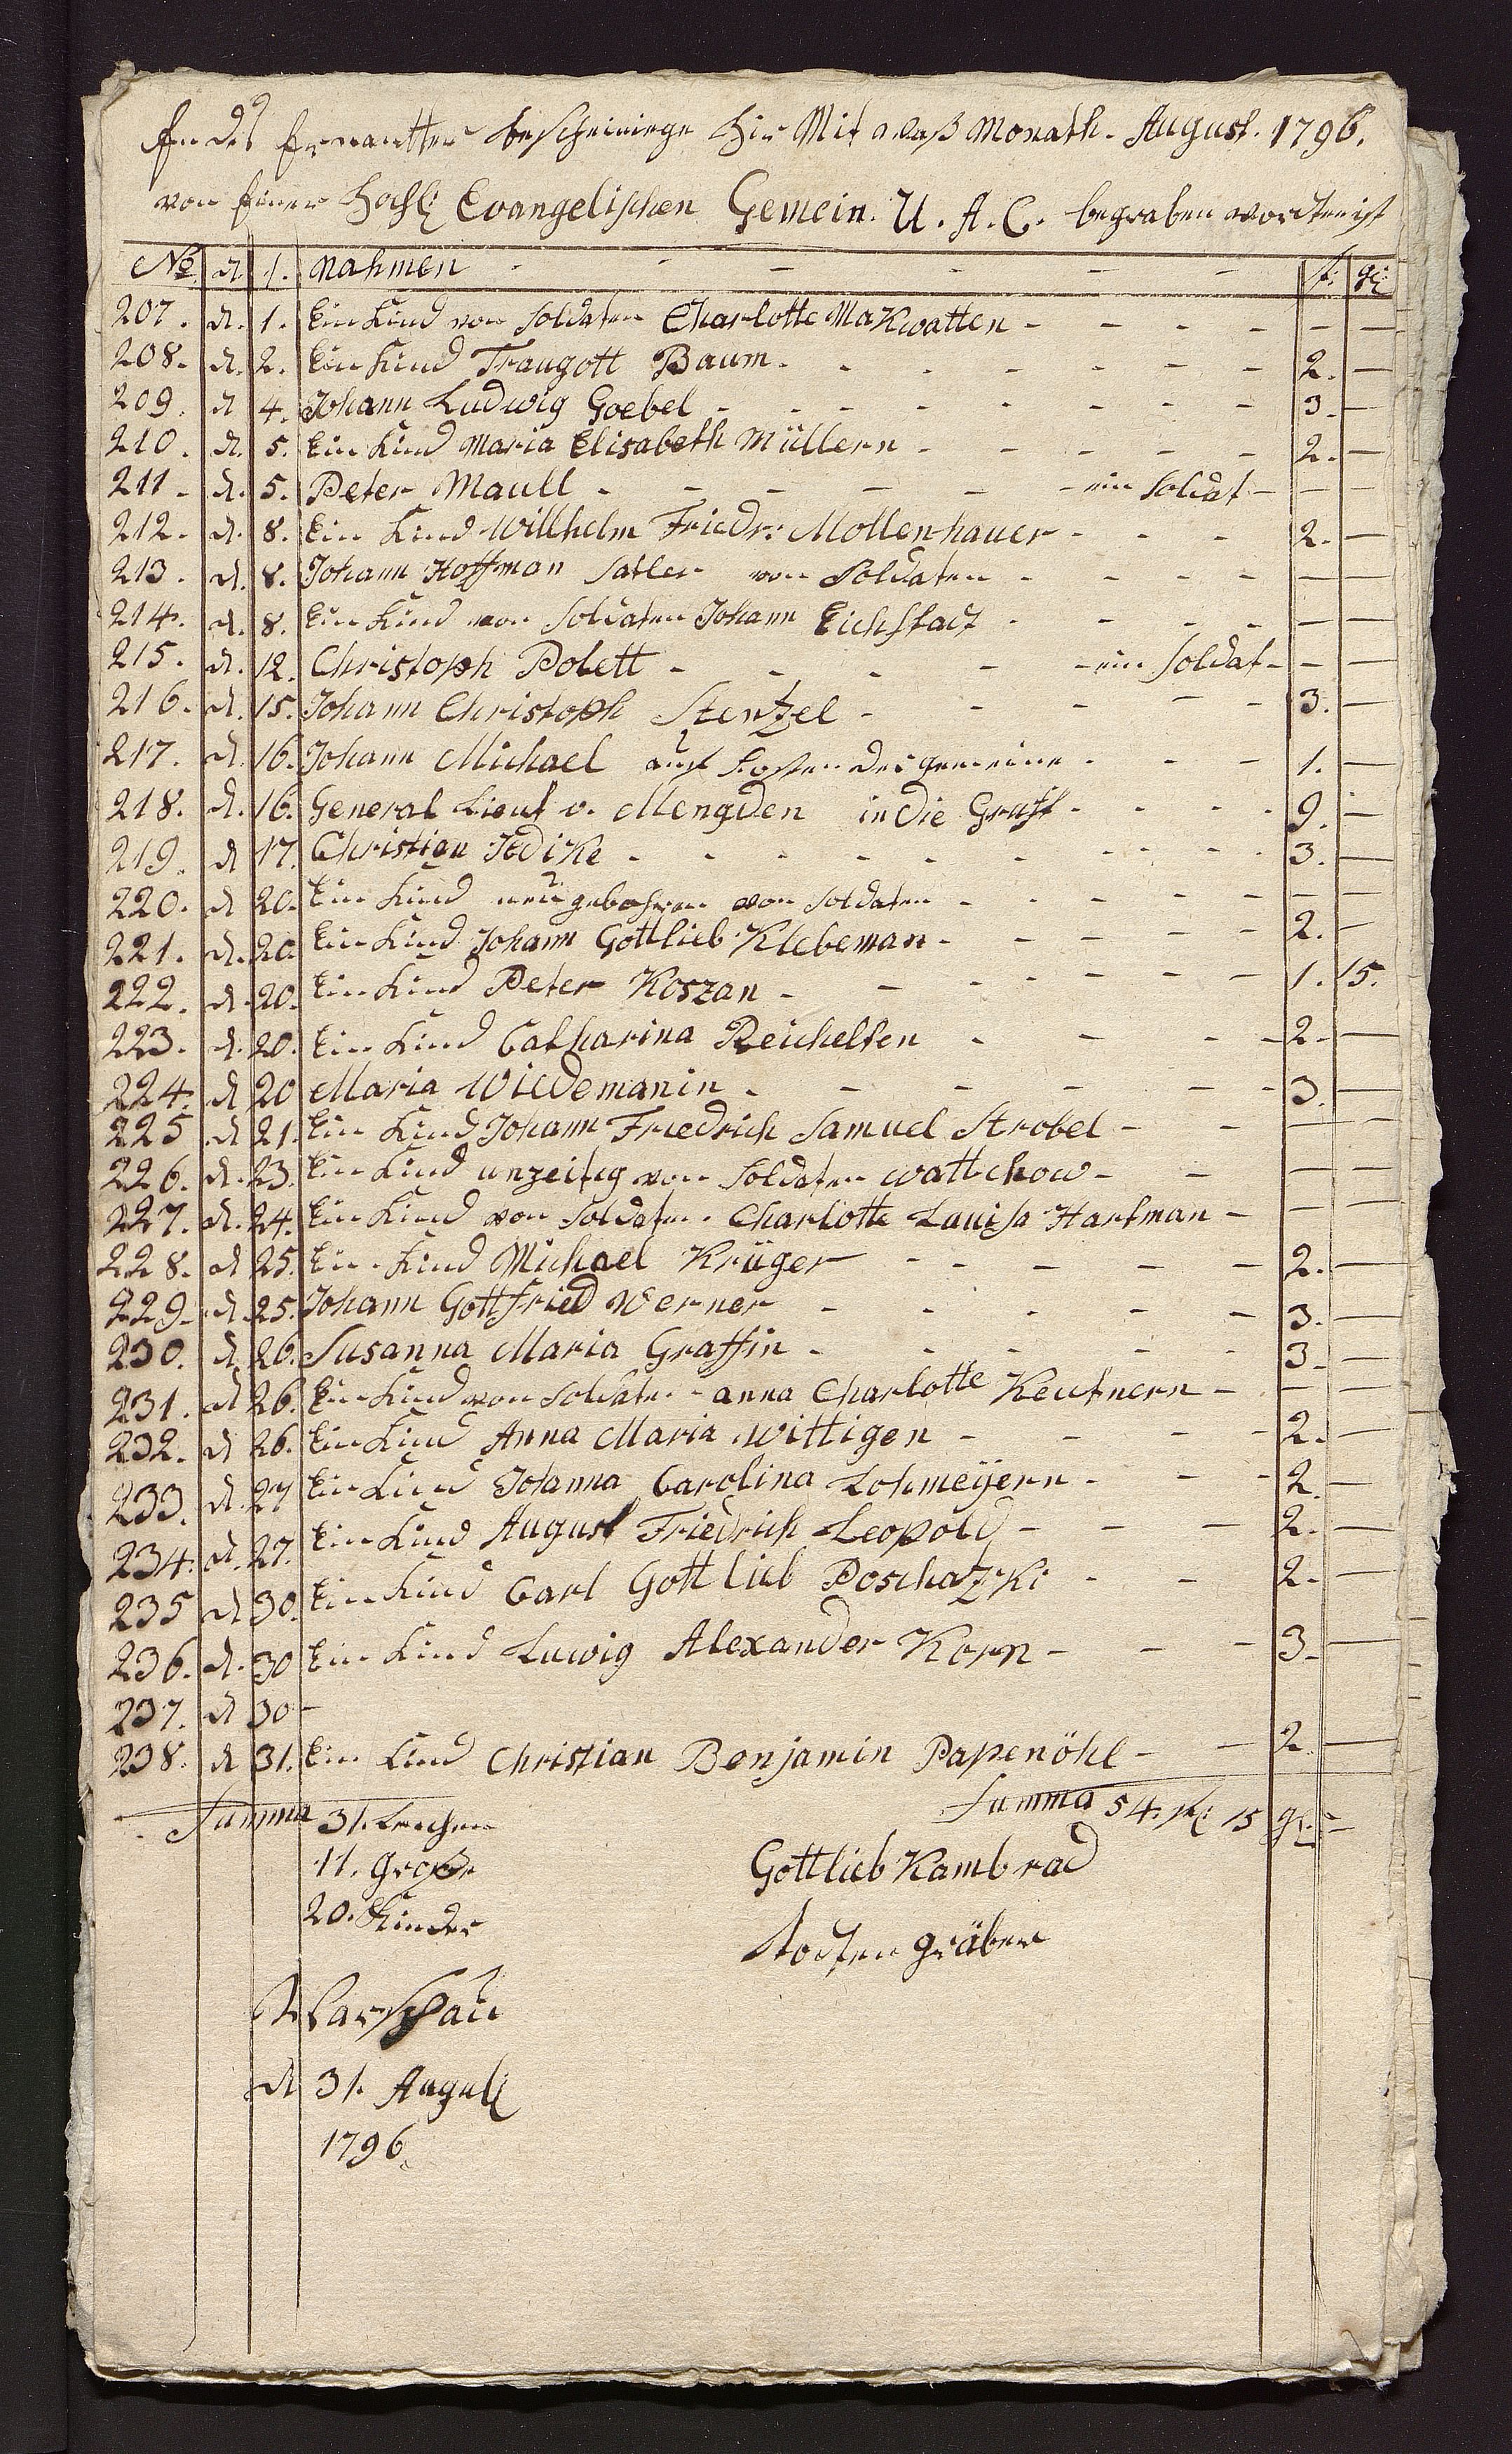 Endes Ernantter bescheinige hir Mit daß Monath. August. 1796.
von Einer Hochl: Evangelischen Gemein. U. A. C. begraben worden ist
No d. 1. Nahmen - - - - - - f: gl:
207. d. 1. Ein Kind von Soldaten Charlotte Makwatten - - - - - -
208. d. 2. Ein Kind Traugott Baum - - - - - - 2. -
209. d 4. Johann Ludwig Goebel - - - - - - - 3. -
210. d. 5. Ein Kind Maria Elisabeth Müllern - - - - - 2. -
211. d. 5. Peter Maull - - - - - - ein Soldat - - -
212. d. 8. Ein Kind Willhelm Friedr: Mollenhauer - - - 2. -
213. d. 8. Johann Hoffman Satler von Soldaten - - - - - -
214. d. 8. Ein Kind von Soldaten Johann Eichstadt - - - - - -
215. d. 12. Christoph Polett - - - - - ein Soldat - - -
216. d. 15. Johann Christoph Stentzel - - - - - 3. -
217. d. 16. Johann Michael auf Kosten der gemeine - - - 1. -
218. d. 16. General Lieut v. Mengden in die Gruft - - - - 9. -
219. d 17. Christian Jedike - - - - - - - - - 3. -
220. d 20. Ein Kind neu gebohren von Soldaten - - - - - - -
221. d. 20. Ein Kind Johann Gottlieb Klebeman - - - - - 2. -
222. d. 20. Ein Kind Peter Koszan - - - - - - 1. 15.
223. d. 20. Ein Kind Catharina Reichelten - - - - 2. -
224. d 20 Maria Wiedemanin - - - - - - 3. -
225 d 21. Ein Kind Johann Friedrich Samuel Strobel - - - -
226. d. 23. Ein Kind unzeitig von Soldaten wattchow - - - -
227. d. 24. Ein Kind von Soldaten. Charlotte Lauisa Hartman - - -
228. d 25. Ein Kind Michael Krüger - - - - - 2. -
229. d. 25. Johann Gottfried Werner - - - - - 3. -
230. d 26. Susanna Maria Graffin - - - - - 3. -
231. d 26. Ein Kind von Soldaten - anna Charlotte Keutnern - - -
232. d 26. Ein Kind Anna Maria Wittigen - - - - 2. -
233. d. 27 Ein Kind Johanna Carolina Lohmeÿern - - - 2. -
234. d. 27. Ein Kind August Friedrich Leopold - - - 2. -
235 d 30. Ein Kind Carl Gottlieb Poschatzki - - 2. -
236. d. 30 Ein Kind Luwig Alexander Korn - - - 3. -
237. d 30 -
238. d 31. Ein Kind Christian Benjamin Papenöhl - - 2. -
Summa 31. Leichen
Summa 54. fl: 15 gl: -
11. Große
20. Kinder
Gottlieb Kambrad
Todten gräber
Warschau
d 31. August
1796.